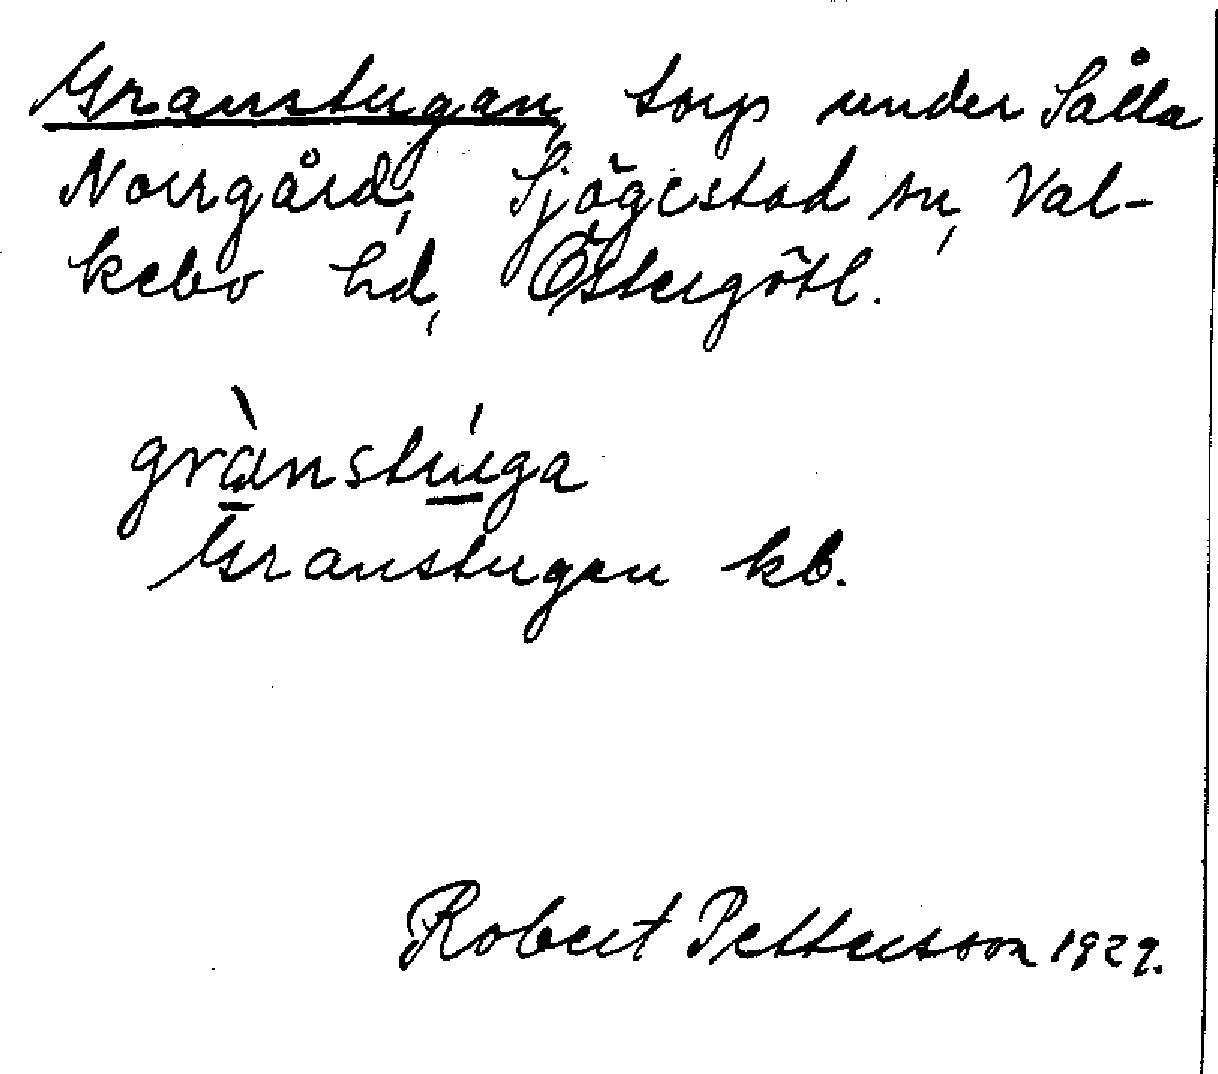 Granstugan, torp under Sålla
Norrgård, Sjögestad sn, Val-
kebo hd, Östergötl.
grànstúga
Granstugan kb.
Robert Pettersson 1929.